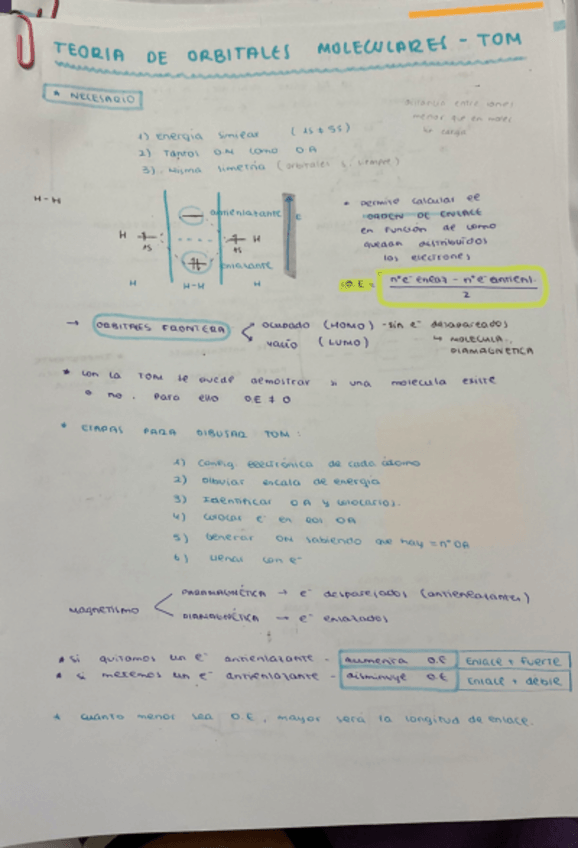 TEORIA DE ORBITALES MOLECULARES - TOM
* NECESARIO
distancia entre iones
menor que en moles
1) energía similar (1s ≠ 5s)
2) Tantos OM como OA
3) Misma simetría (orbitales s, siempre)
H-H
antienlazante E
H 1s 1s H
enlazante
H H-H H
* permite calcular el
ORDEN DE ENLACE
en función de como
quedan distribuidos
los electrones
O.E = nºe⁻ enlaz - nºe⁻ antienl. / 2
→ ORBITALES FRONTERA
ocupado (HOMO) - sin e⁻ desapareados
vacío (LUMO) ↳ MOLECULA
DIAMAGNETICA
* con la TOM se puede demostrar si una molecula existe
o no. para ello O.E ≠ 0
* ETAPAS PARA DIBUJAR TOM:
1) Config electrónica de cada átomo
2) Dibujar escala de energía
3) Identificar OA y colocarlos.
4) colocar e⁻ en los OA
5) Generar OM sabiendo que hay = nº OA
6) Llenar con e⁻
MAGNETISMO
PARAMAGNÉTICA → e⁻ desparejados (antienlazantes)
DIAMAGNÉTICA → e⁻ enlazados
* si quitamos un e⁻ antienlazante - aumenta O.E ENLACE + FUERTE
* si metemos un e⁻ antienlazante - disminuye O.E ENLACE + DEBIL
* cuanto menor sea O.E, mayor será la longitud de enlace.